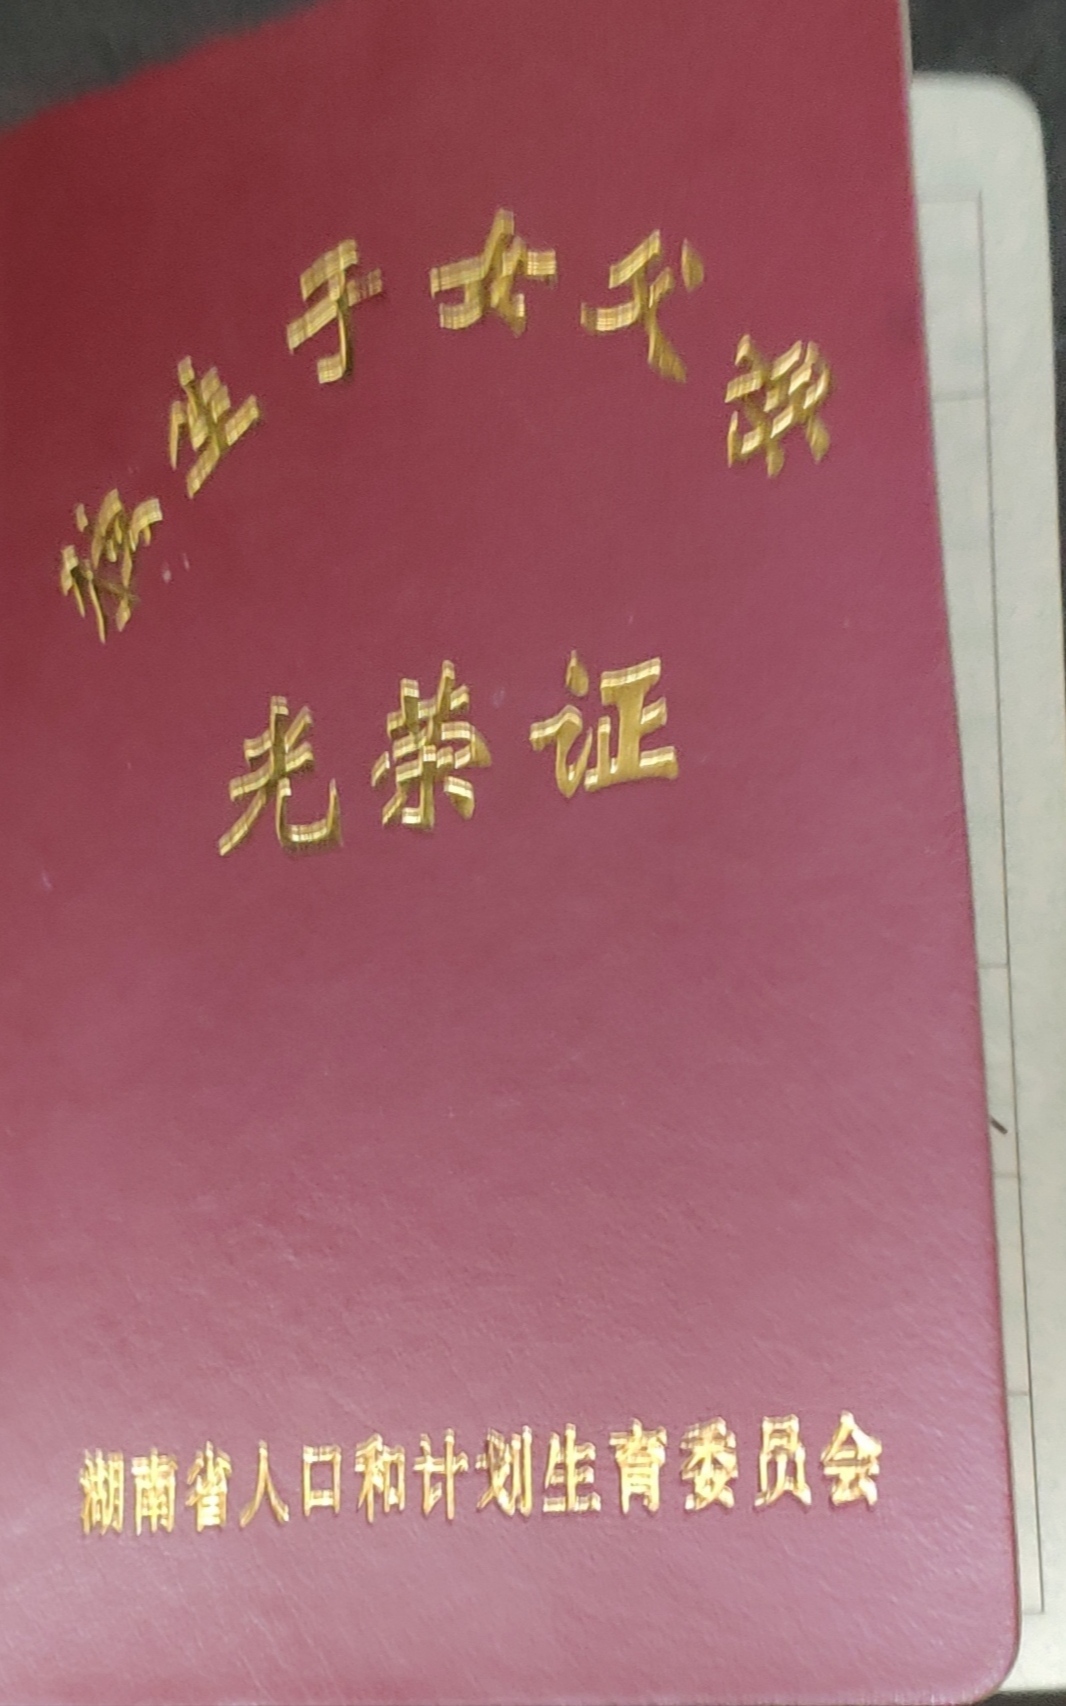 独生子女父母
光荣证
湖南省人口和计划生育委员会